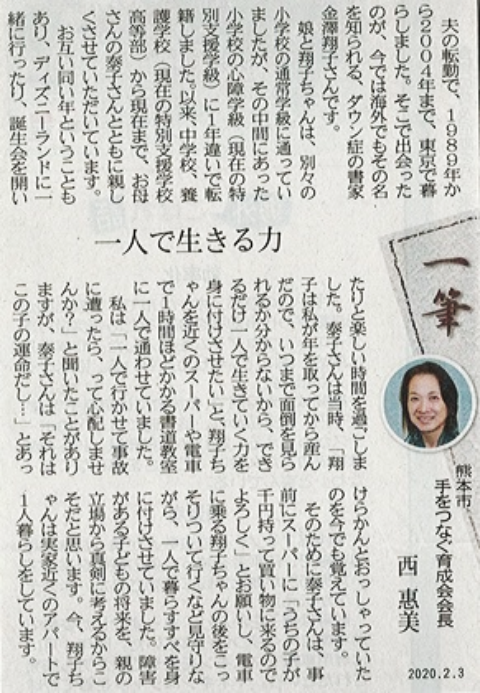 一筆
熊本市
手をつなぐ育成会会長
西 惠美
一人で生きる力
夫の転勤で、1989年か
ら2004年まで、東京で暮
らしました。そこで出会った
のが、今では海外でもその名
を知られる、ダウン症の書家
金澤翔子さんです。
娘と翔子ちゃんは、別々の
小学校の通常学級に通ってい
ましたが、その中間にあった
小学校の心障学級（現在の特
別支援学級）に1年違いで転
籍しました。以来、中学校、養
護学校（現在の特別支援学校
高等部）から現在まで、お母
さんの泰子さんとともに親し
くさせていただいています。
お互い同い年ということも
あり、ディズニーランドに一
緒に行ったり、誕生会を開い
たりと楽しい時間を過ごしま
した。泰子さんは当時、「翔
子は私が年を取ってから産ん
だので、いつまで面倒を見ら
れるか分からないから、でき
るだけ一人で生きていく力を
身に付けさせたい」と、翔子ち
ゃんを近くのスーパーや電車
で1時間ほどかかる書道教室
に一人で通わせていました。
私は「一人で行かせて事故
に遭ったら、って心配しませ
んか？」と聞いたことがあり
ますが、泰子さんは「それは
この子の運命だし…」とあっ
けらかんとおっしゃっていた
のを今でも覚えています。
そのために泰子さんは、事
前にスーパーに「うちの子が
千円持って買い物に来るので
よろしく」とお願いし、電車
に乗る翔子ちゃんの後をこっ
そりついて行くなど見守りな
がら、一人で暮らすすべを身
に付けさせていました。障害
がある子どもの将来を、親の
立場から真剣に考えるからこ
そだと思います。今、翔子ち
ゃんは実家近くのアパートで
1人暮らしをしています。
2020.2.3